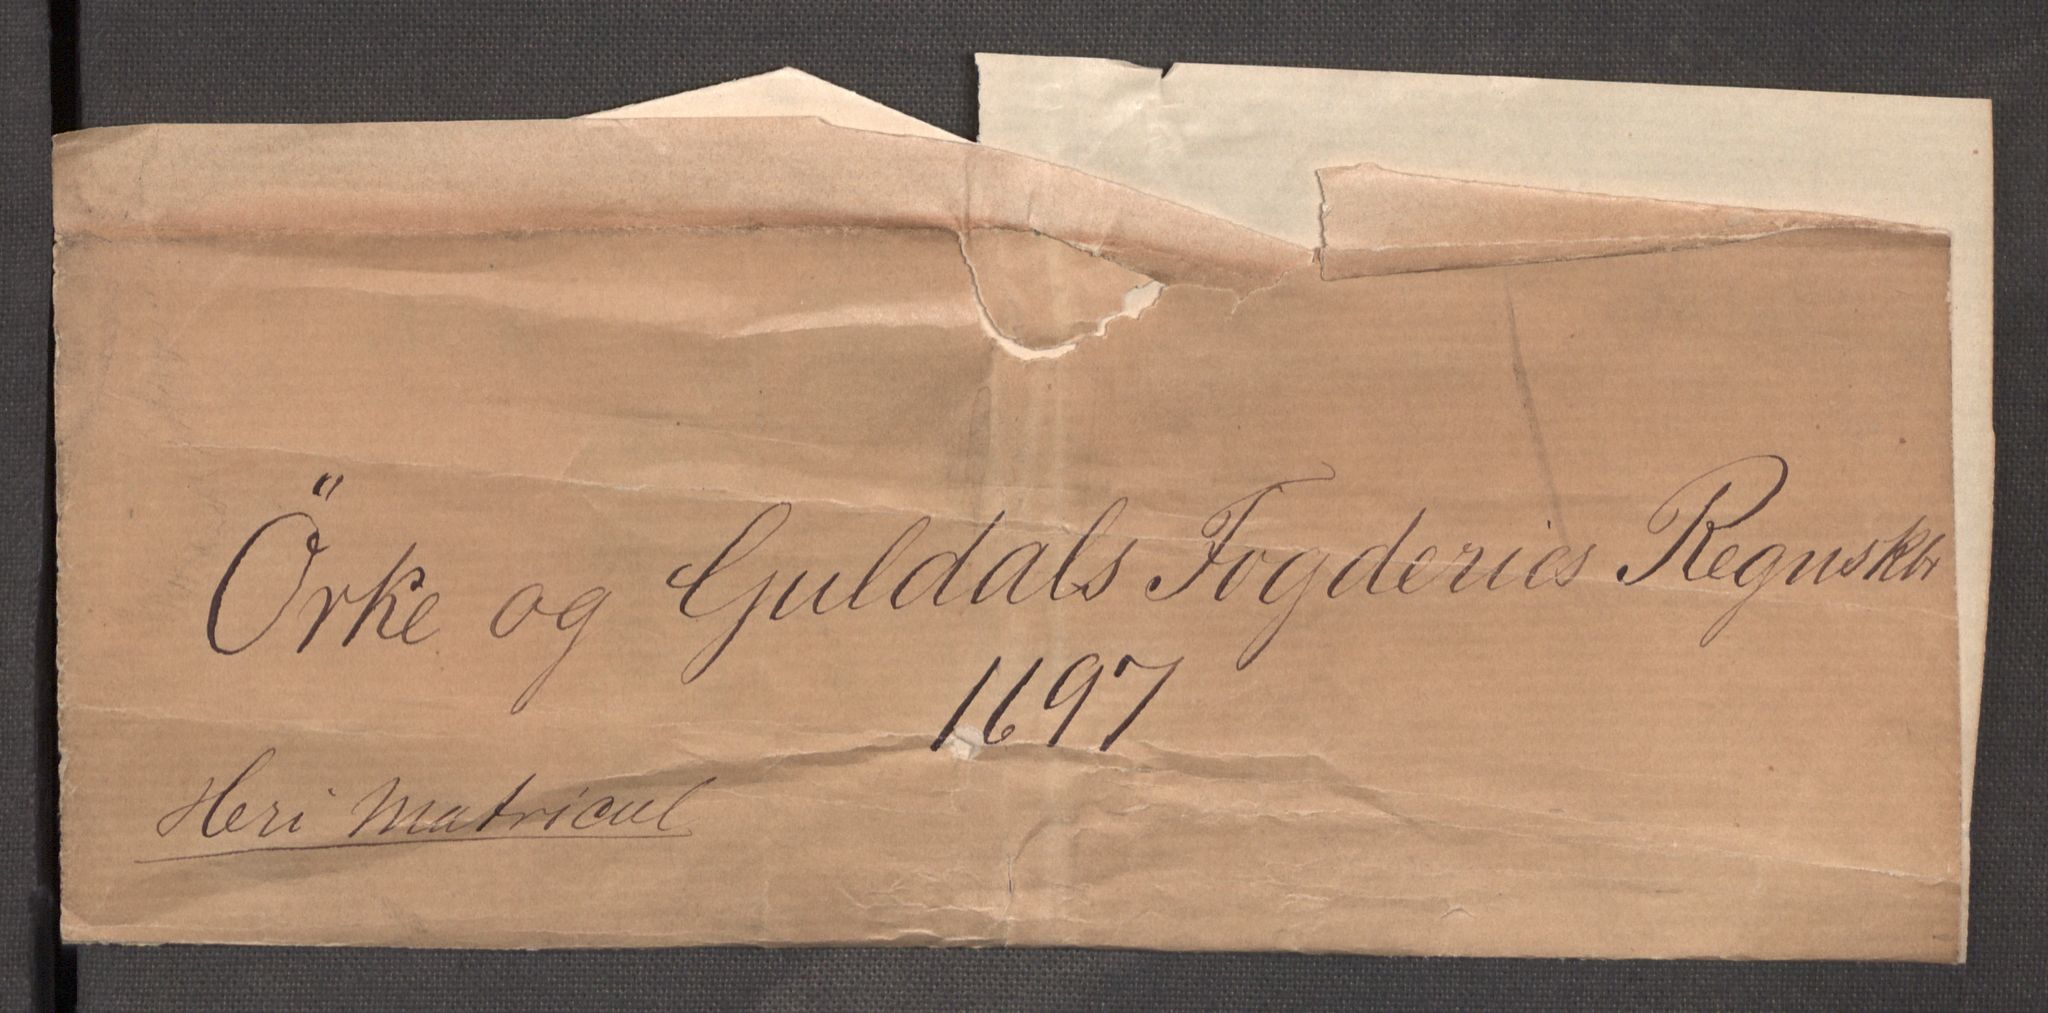 Örke og Guldals Fogderies Regnskbr
1697
Heri Matricul